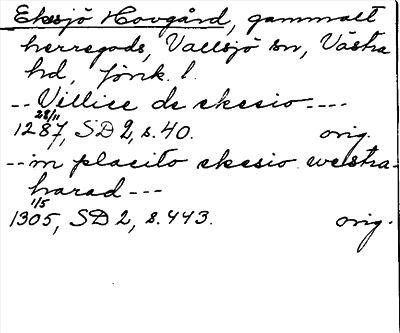 Eksjö Hovgård, gammalt
herregods, Vallsjö sn, Västra
hd, Jönk. l.
-- Villice de ekesio ----
28/11
1287, SD 2, s. 40. orig.
-- in placito ekesio westra-
harad ---
1/5
1305, SD 2, s. 443. orig.